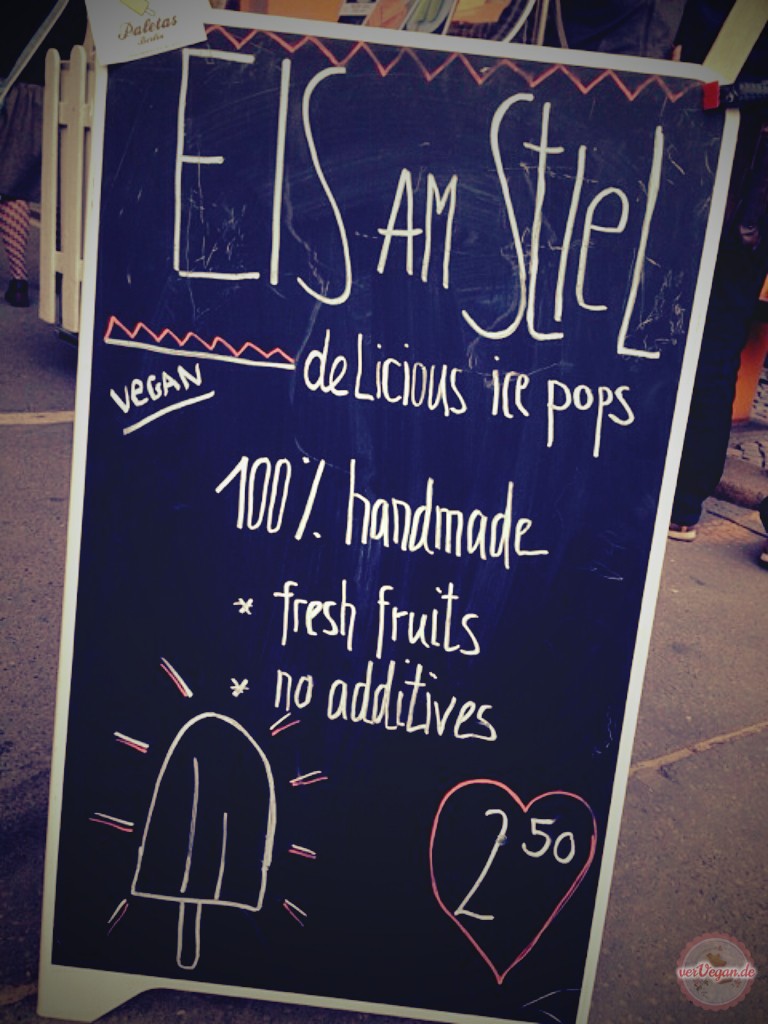 Paletas
Berlin
EIS AM STIEL
deLicious ice pops
VEGAN
100% handmade
* fresh fruits
* no additives
2 50
verVegan.de